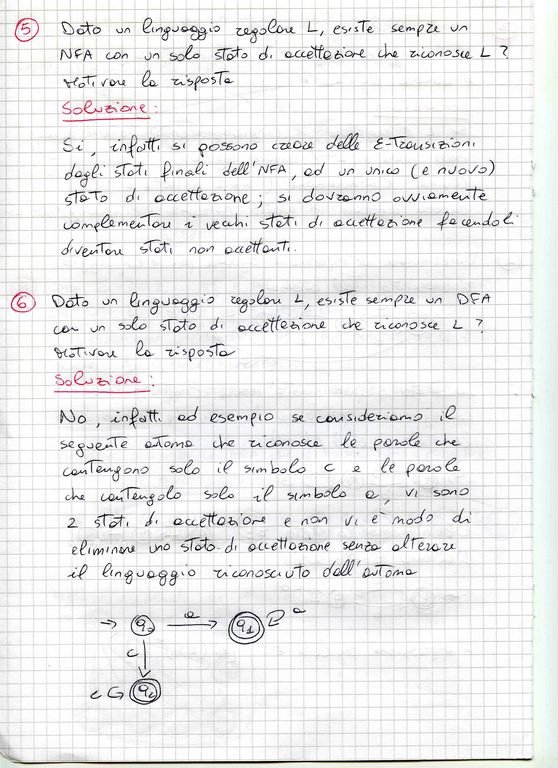 5 Dato un linguaggio regolare L, esiste sempre un
NFA con un solo stato di accettazione che riconosce L ?
Motivare la risposta
Soluzione:
Si, infatti si possono creare delle ε-Transizioni
dagli stati finali dell'NFA, ad un unico (e nuovo)
stato di accettazione ; si dovranno ovviamente
complementare i vecchi stati di accettazione facendoli
diventare stati non accettanti.
6 Dato un linguaggio regolare L, esiste sempre un DFA
con un solo stato di accettazione che riconosce L ?
Motivare la risposta
Soluzione:
No, infatti ad esempio se consideriamo il
seguente automa che riconosce le parole che
contengono solo il simbolo c e le parole
che contengolo solo il simbolo a, vi sono
2 stati di accettazione e non vi è modo di
eliminare uno stato di accettazione senza alterare
il linguaggio riconosciuto dall'automa
→ q0 a → q1 a
c
c